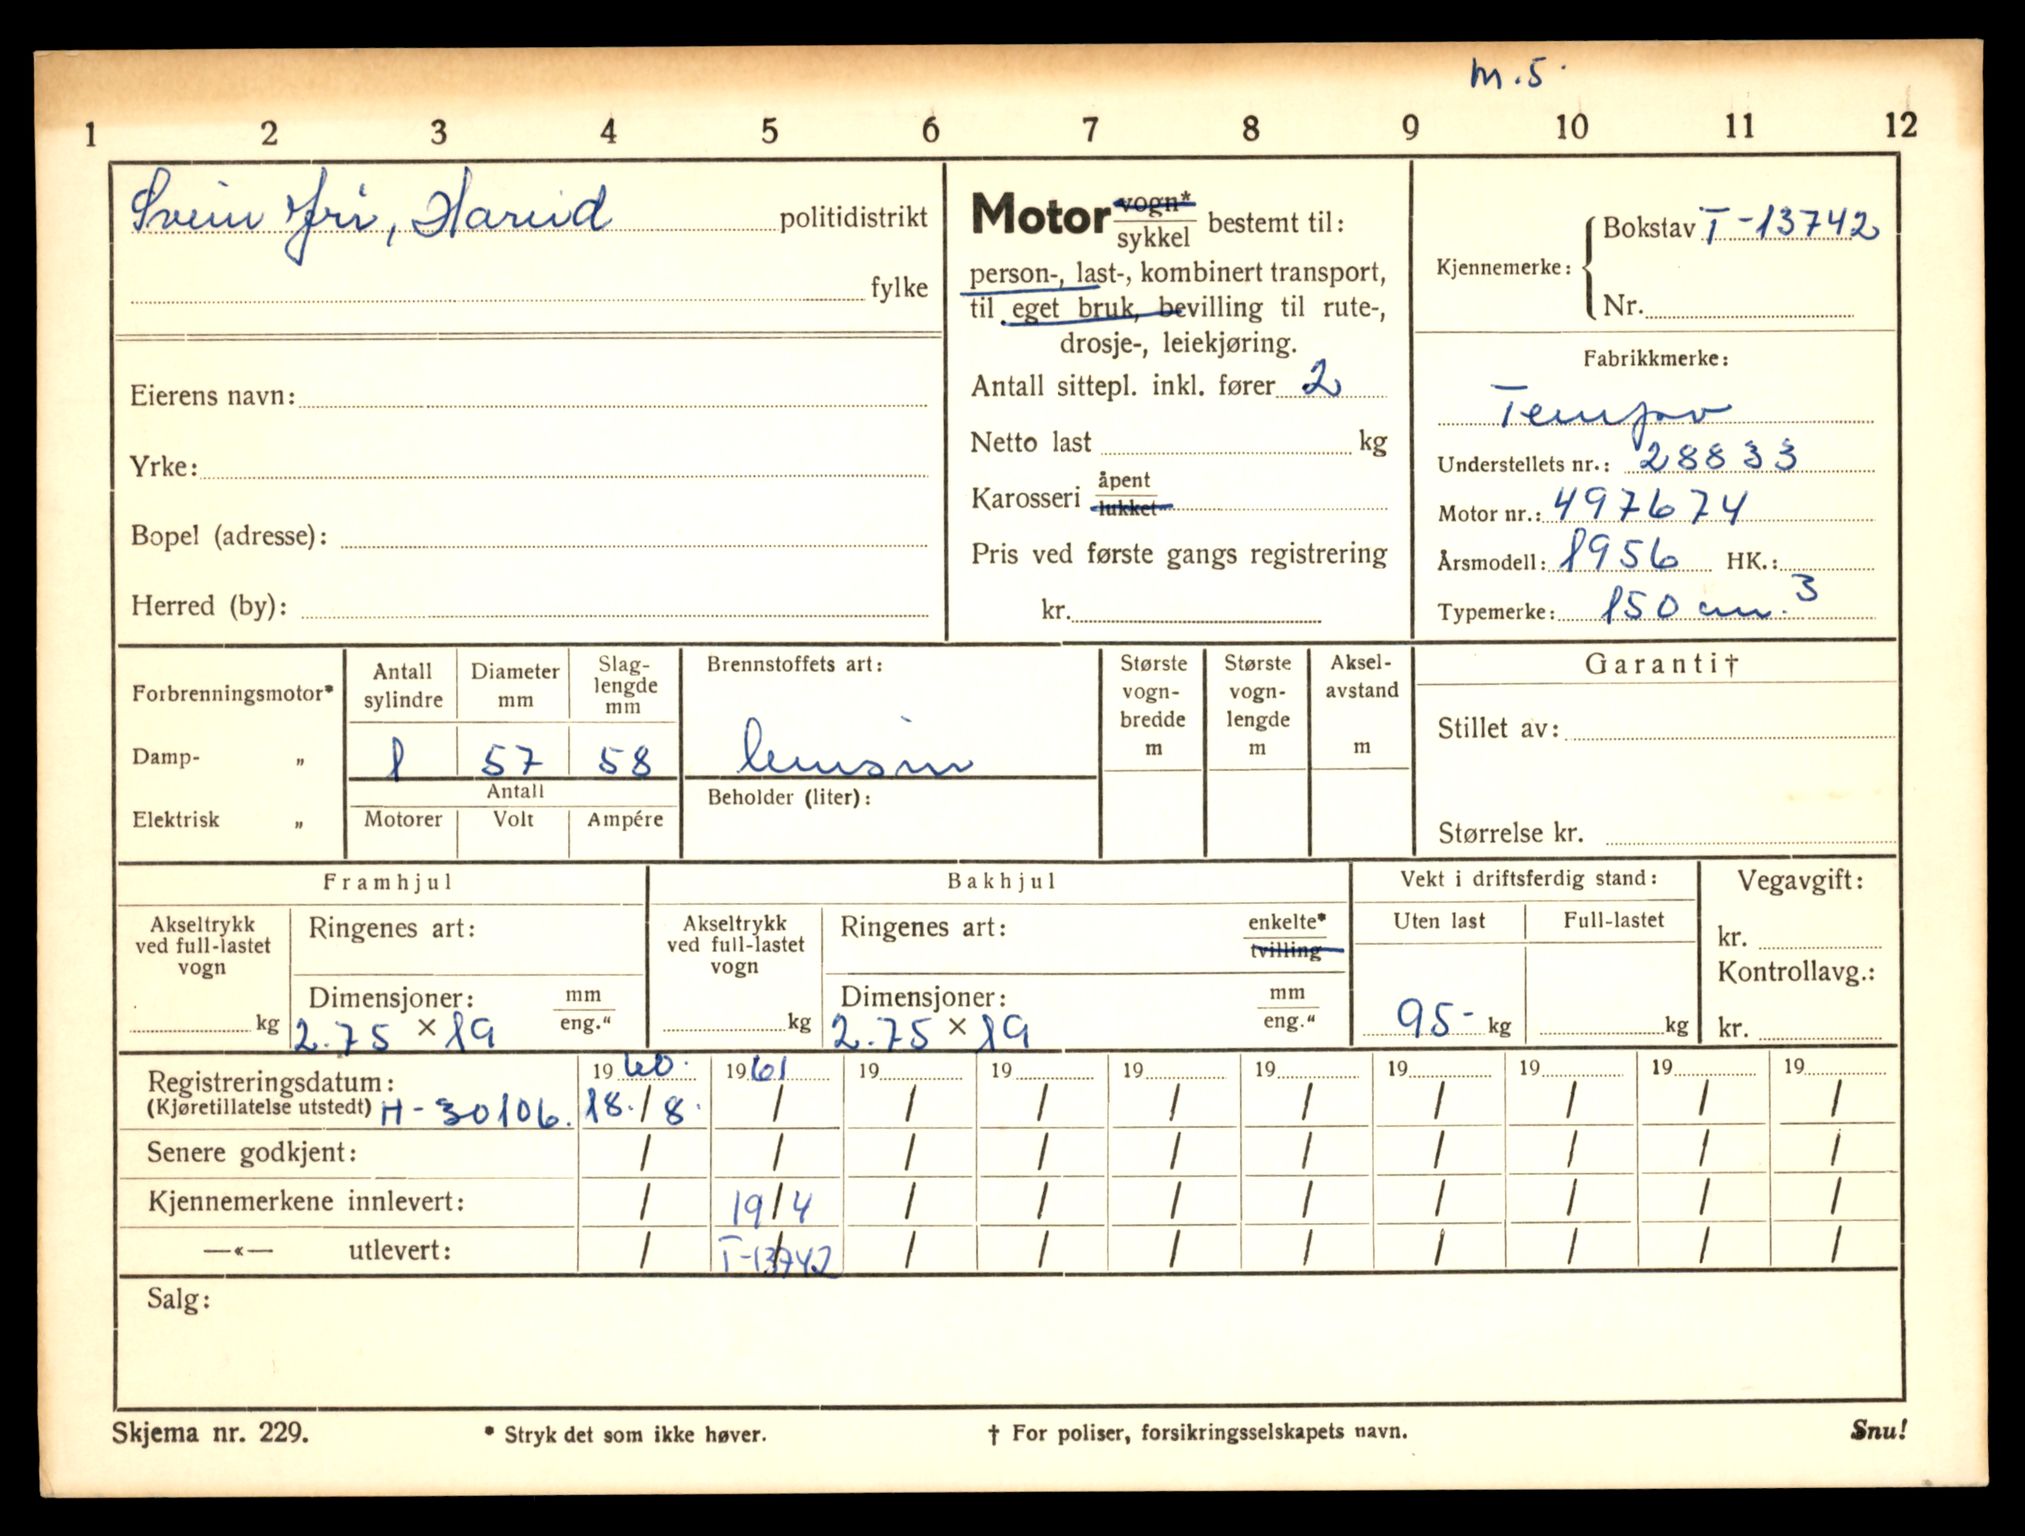 m.5.
1 2 3 4 5 6 7 8 9 10 11 12
Svein Fri, Hareid politidistrikt
fylke
Eierens navn:
Yrke:
Bopel (adresse):
Herred (by):
Motor vogn* / sykkel bestemt til:
person-, last-, kombinert transport,
til eget bruk, bevilling til rute-,
drosje-, leiekjøring.
Antall sittepl. inkl. fører 2
Netto last kg
Karosseri åpent / lukket
Pris ved første gangs registrering
kr.
Kjennemerke: Bokstav T-13742
Nr.
Fabrikkmerke:
Tempo
Understellets nr.: 28833
Motor nr.: 497674
Årsmodell: 1956 HK.:
Typemerke: 150 cm.3
Forbrenningsmotor*
Damp- „
Elektrisk „
Antall sylindre Diameter mm Slag-lengde mm
1 57 58
Antall
Motorer Volt Ampére
Brennstoffets art:
bensin
Beholder (liter):
Største vogn-bredde m
Største vogn-lengde m
Aksel-avstand m
Garanti†
Stillet av:
Størrelse kr.
Framhjul
Akseltrykk ved full-lastet vogn
kg
Ringenes art:
Dimensjoner: mm / eng."
2.75 × 19
Bakhjul
Akseltrykk ved full-lastet vogn
kg
Ringenes art: enkelte* / tvilling
Dimensjoner: mm / eng."
2.75 × 19
Vekt i driftsferdig stand:
Uten last Full-lastet
95- kg kg
Vegavgift:
kr.
Kontrollavg.:
kr.
Registreringsdatum: 1960. 1961 19 19 19 19 19 19 19 19
(Kjøretillatelse utstedt) H-30106. 18./8. / / / / / / / / /
Senere godkjent: / / / / / / / / / /
Kjennemerkene innlevert: / 19/4 / / / / / / / /
—«— utlevert: / T-13742 / / / / / / / /
Salg:
Skjema nr. 229. * Stryk det som ikke høver. † For poliser, forsikringsselskapets navn. Snu!